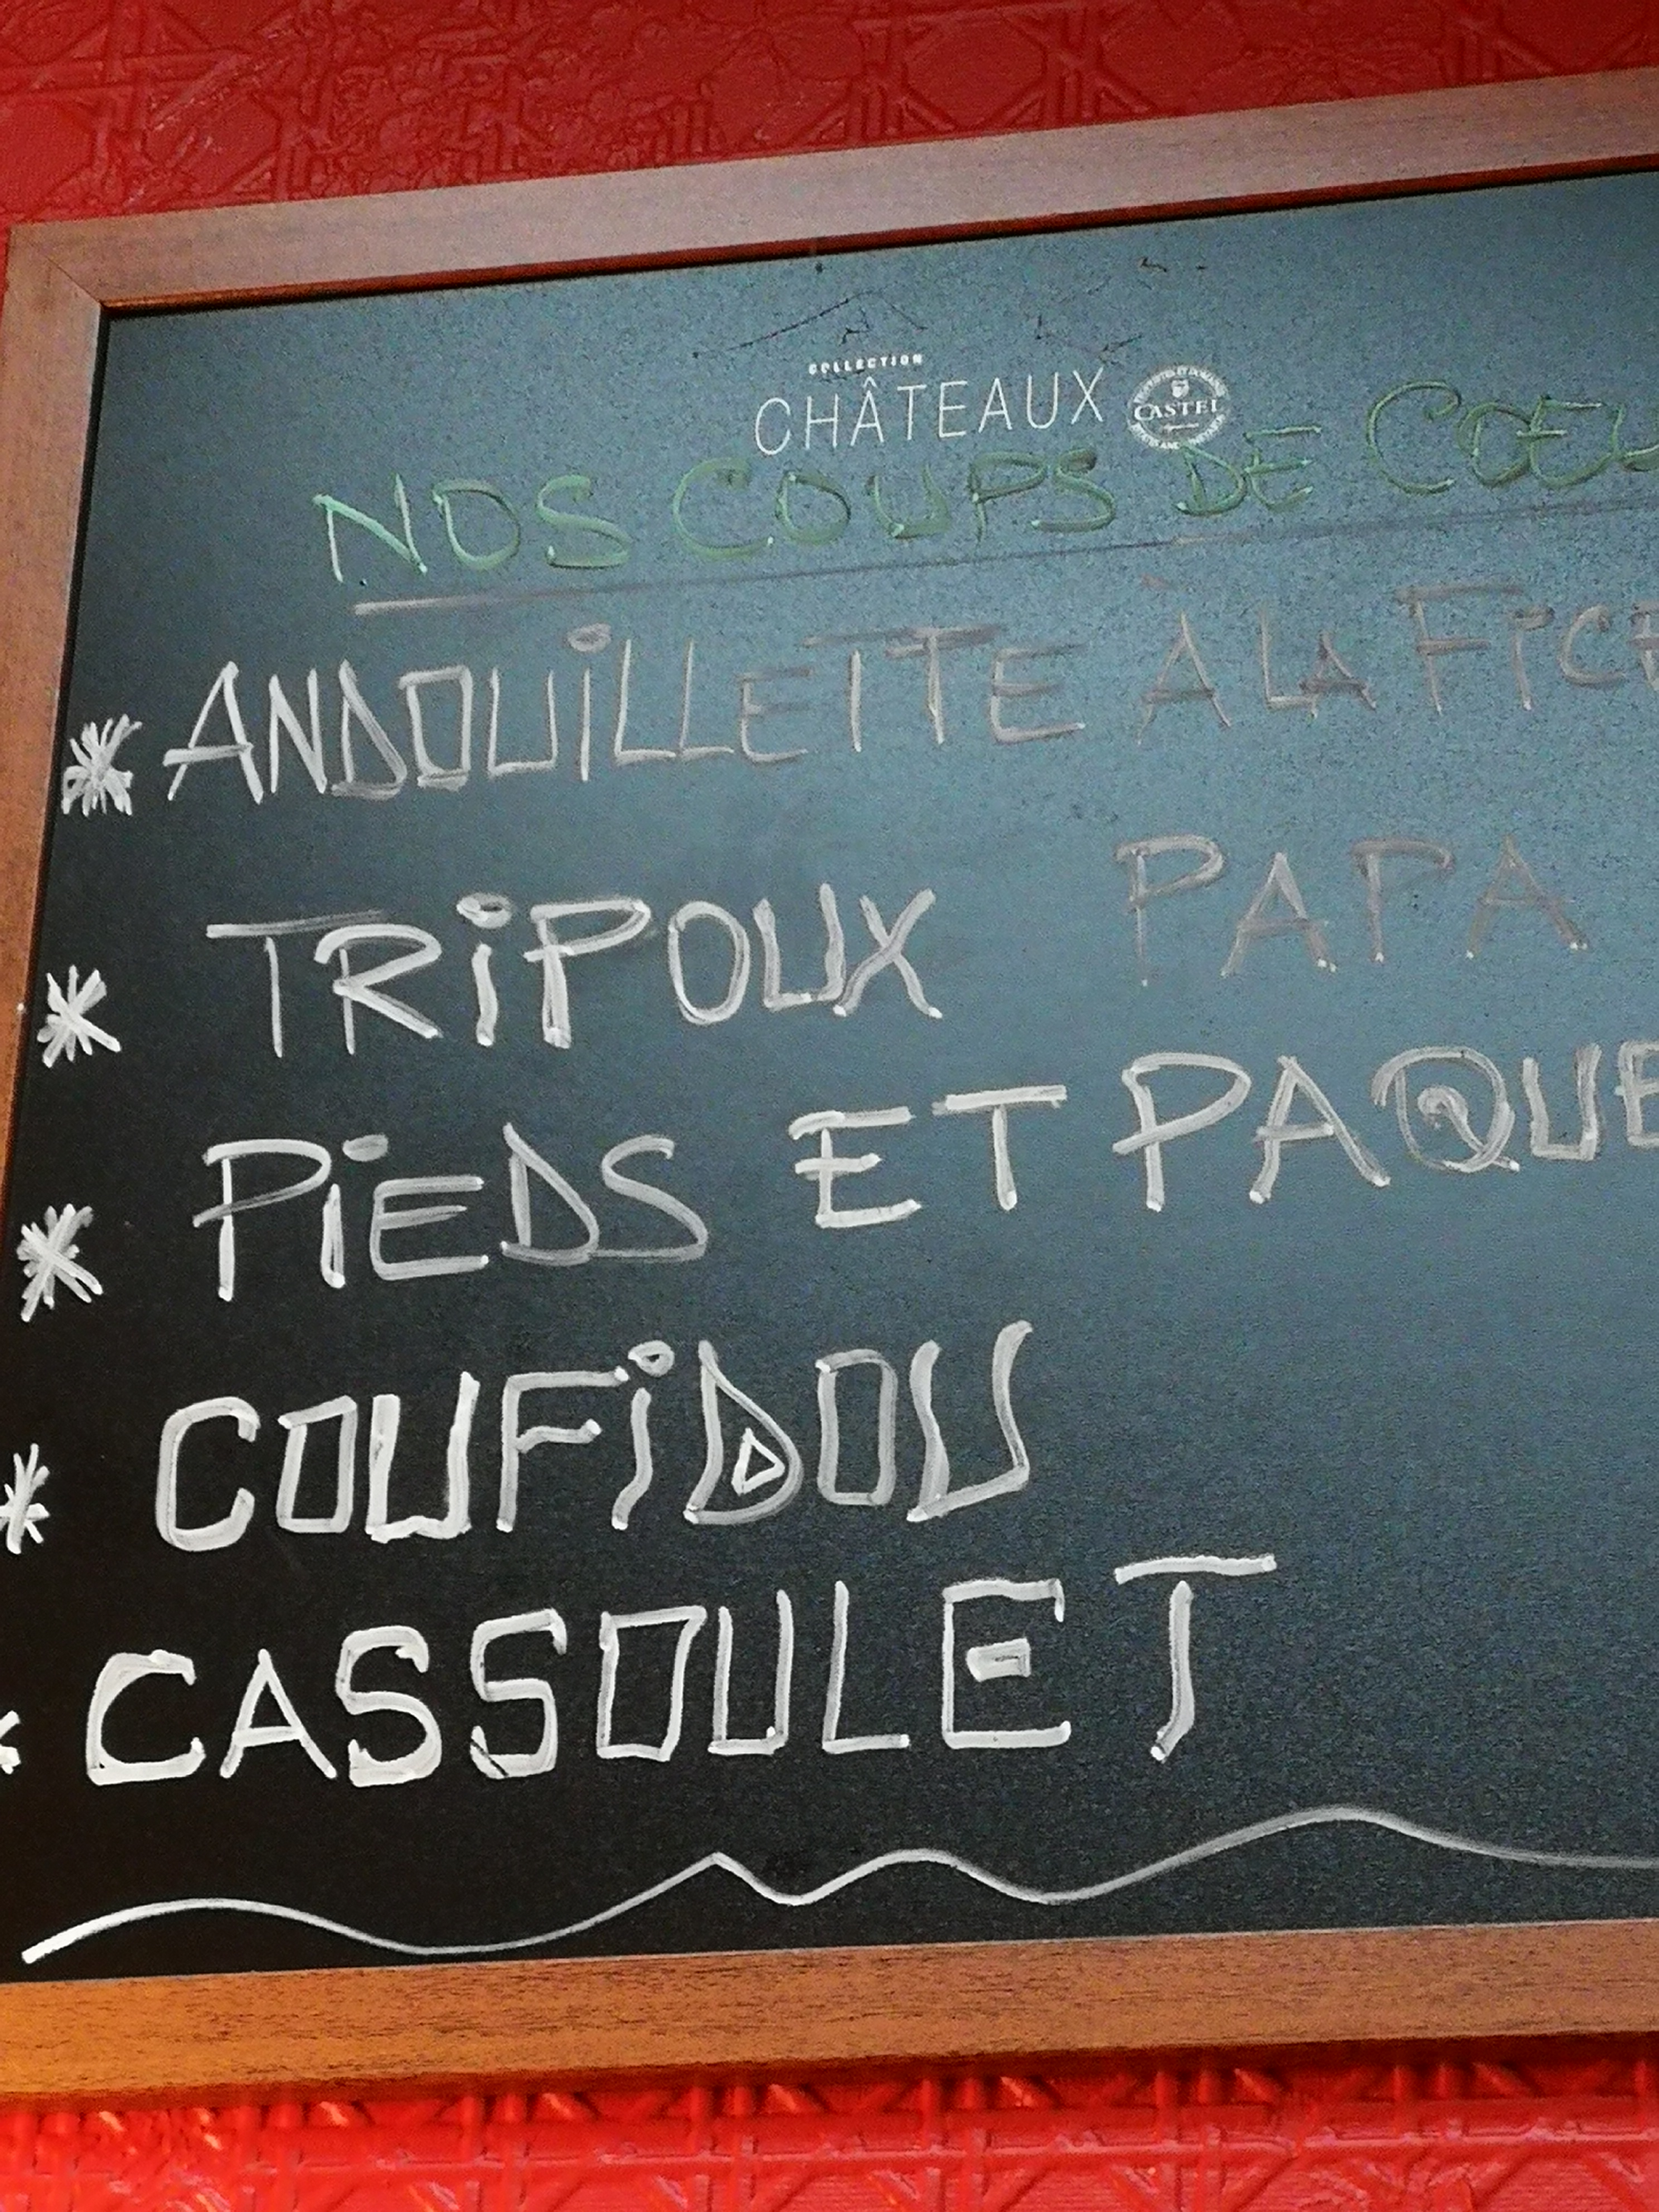 COLLECTION
CHÂTEAUX CASTEL
NOS COUPS DE COEU
* ANDOUiLLETTE À LA FiCE
* TRiPOUX PAPA
* PiEDS ET PAQUE
* COUFiDOU
* CASSOULET